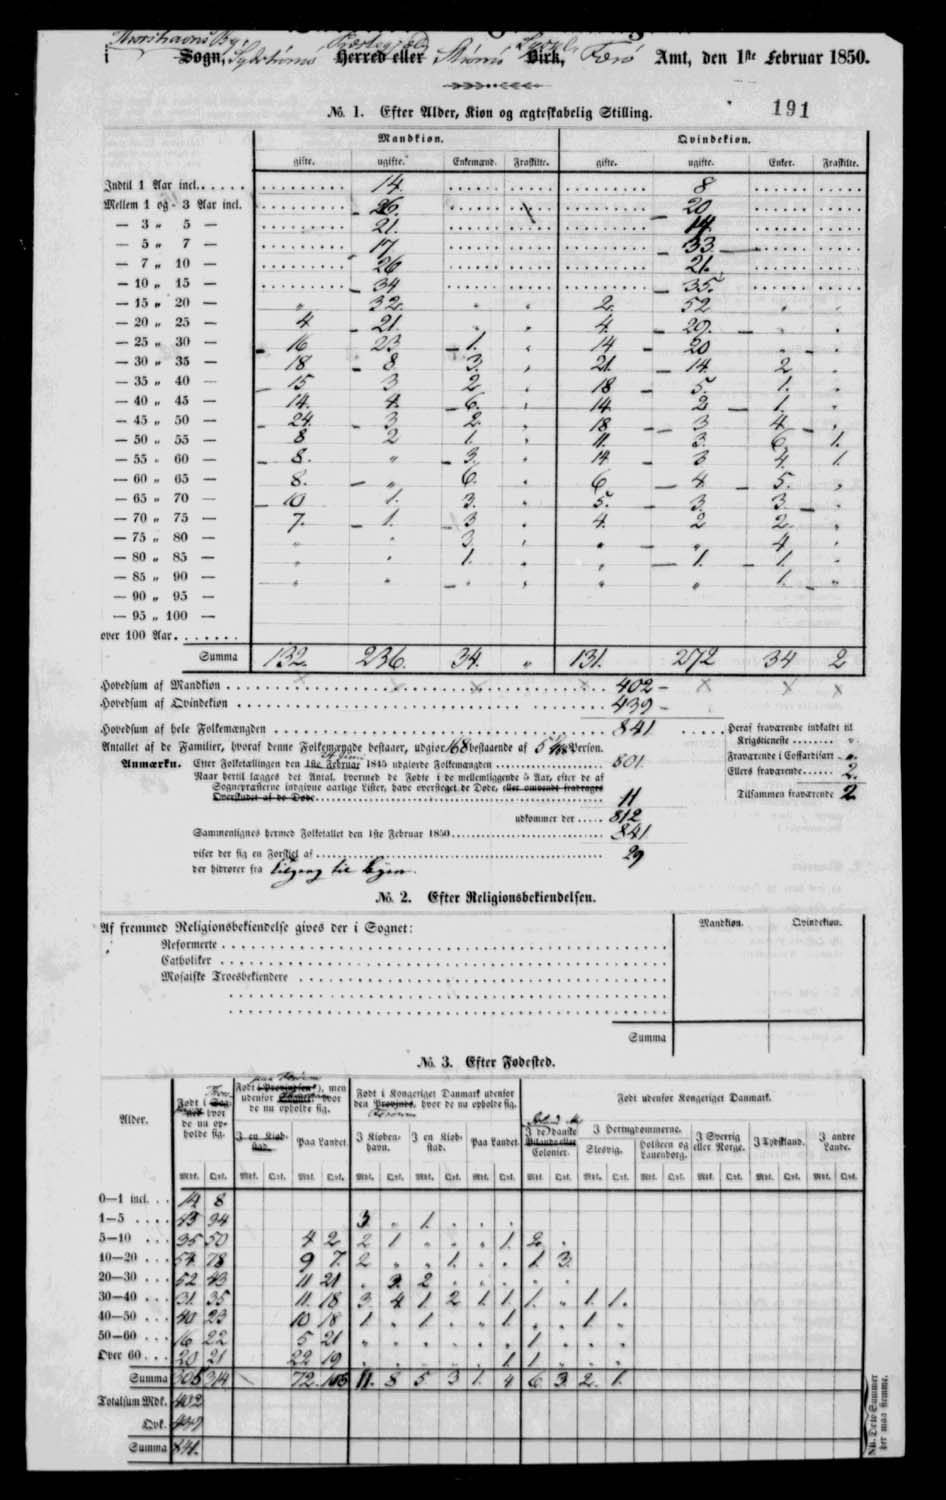 Thorshavns By
i Sogn, Sydstrømø Præstegjeld Herred eller Strømø Syssel Birk, Færø Amt, den 1ste Februar 1850.
191
No. 1. Efter Alder, Kiøn og ægteskabelig Stilling.
Mandkiøn. Qvindekiøn.
gifte. ugifte. Enkemænd. Fraskilte. gifte. ugifte. Enker. Fraskilte.
Indtil 1 Aar incl. 14. 8
Mellem 1 og 3 Aar incl. 26. 20
— 3 „ 5 — 21. 14.
— 5 „ 7 — 17 33
— 7 „ 10 — 26 21.
— 10 „ 15 — 34 35.
— 15 „ 20 — „ 32. „ „ 2 52 „ „
— 20 „ 25 — 4 21. „ „ 4. 29. „ „
— 25 „ 30 — 16 23 1. „ 14 20 „ „
— 30 „ 35 — 18 8 3. „ 21. 14. 2 „
— 35 „ 40 — 15 3 2 „ 18 5. 1. „
— 40 „ 45 — 14. 4. 6. „ 14. 2 1. „
— 45 „ 50 — 24. 3 2. „ 18 3 4 „
— 50 „ 55 — 8 2 1. „ 11. 3. 6 1.
— 55 „ 60 — 8. „ 3. „ 14. 3 4. 1.
— 60 „ 65 — 8. „ 6. „ 6 4 5. „
— 65 „ 70 — 10 1. 3. „ 5. 3. 3. „
— 70 „ 75 — 7. 1. 3 „ 4. 2 2. „
— 75 „ 80 — „ „ 3. „ „ „ 4 „
— 80 „ 85 — „ „ 1. „ „ 1. 1. „
— 85 „ 90 — „ „ „ „ „ „ 1. „
— 90 „ 95 —
— 95 „ 100 —
over 100 Aar.
Summa 132. 236. 34. „ 131. 272 34 2
Hovedsum af Mandkiøn 402
Hovedsum af Qvindekiøn 439
Hovedsum af hele Folkemængden 841
Heraf fraværende indkaldt til Krigstieneste „
Antallet af de Familier, hvoraf denne Folkemængde bestaaer, udgiør 168 bestaaende af 5 Person.
Fraværende i Coffardifart „
Ellers fraværende 2.
Tilsammen fraværende 2
Anmærkn. Efter Folketællingen den 1ste Februar 1845 udgiorde Folkemængden 801.
Naar hertil lægges det Antal, hvormed de Fødte i de mellemliggende 5 Aar, efter de af
Sognepræsterne indgivne aarlige Lister, have oversteget de Døde, eller omvendt fradrages
Overskudet af de Døde 11
udkommer der 812
Sammenlignes hermed Folketallet den 1ste Februar 1850 841
viser der sig en Forskjel af 29
der hidrører fra Tilgang til Byen.
No. 2. Efter Religionsbekiendelsen.
Mandkiøn. Qvindekiøn.
Af fremmed Religionsbekiendelse gives der i Sognet:
Reformerte
Catholiker
Mosaiske Troesbekiendere
Summa
No. 3. Efter Fødested.
Alder.
Født i Sognet hvor de nu opholde sig.
Født i Provindsen), men udenfor hvor de nu opholde sig.
I en Kiøbstad. Paa Landet.
Født i Kongeriget Danmark udenfor den Provinds, hvor de nu opholde sig.
I Kiøbenhavn. I en Kiøbstad. Paa Landet.
Født udenfor Kongeriget Danmark.
I de danske Bilande eller Colonier. I Hertugdømmerne. Slesvig. Holsteen og Lauenborg. I Sverrig eller Norge. I Tydskland. I andre Lande.
Mdk. Qvk. Mdk. Qvk. Mdk. Qvk. Mdk. Qvk. Mdk. Qvk. Mdk. Qvk. Mdk. Qvk. Mdk. Qvk. Mdk. Qvk. Mdk. Qvk. Mdk. Qvk. Mdk. Qvk.
0—1 incl. 14 8
1—5 43 34 3 „ 1. „ „ „
5—10 35 50 4 2 2 1 „ „ „ 1. 2. „
10—20 54 78 9 7. 2 „ „ 1. „ „ 1. 3.
20—30 52 43 11 21 „ 3. 2 „ „ „ „ „
30—40 31. 35 11. 18 3. 4 1. 2 1. 1 1. „ 1. 1.
40—50 40 23 10 18 1 „ 1 „ „ 1 „ „ 1. „
50—60 16 22 5 21 „ „ „ „ „ „ 1 „ „ „
Over 60 20 21 22 19 „ „ „ „ „ 1 1. „ „ „
Summa 305 314 72. 105 11. 8 5 3 1. 4 6. 3. 2. 1.
Totalsum Mdk. 402
Qvk. 439
Summa 841.
NB. Disse Summer her maa stemme.